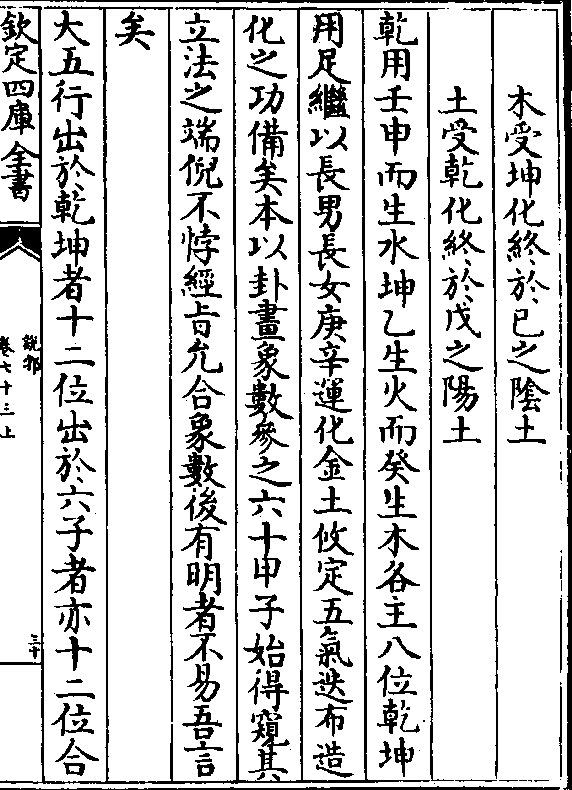 木受坤化終於己之陰土
土受乾化終於戊之陽土
乾用壬申而生水坤乙生火而癸生木各主八位乾坤
用足繼以長男長女庚辛運化金土攸定五氣迭布造
化之功備矣本以卦畫象數參之六十甲子始得窺其
立法之端倪不悖經旨允合象數後有明者不易吾言
矣
大五行出於乾坤者十二位出於六子者亦十二位合
欽定四庫全書
說郛
卷七十三上
三十